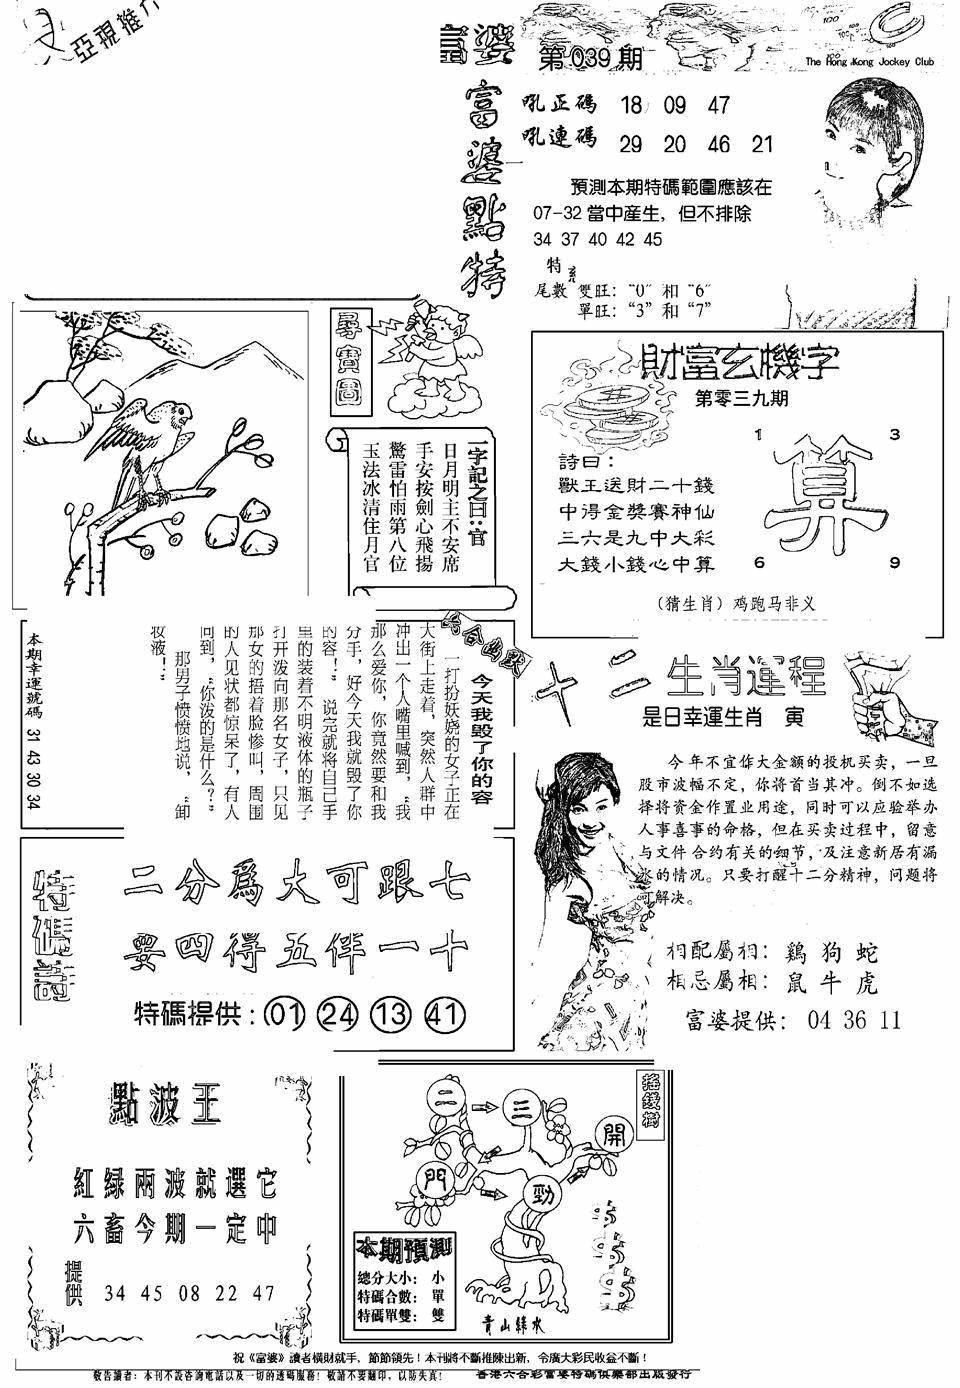 亞視推介
富婆
第039期
The Hong Kong Jockey Club
富婆點特
吼正碼 18 09 47
吼連碼 29 20 46 21
預測本期特碼範圍應該在
07-32當中産生，但不排除
34 37 40 42 45
特
尾數 雙旺：“0”和“6”
單旺：“3”和“7”
尋寶圖
一字記之曰：官
日月明主不安席
手安按劍心飛揚
驚雷怕雨第八位
玉法冰清住月官
財富玄機字
第零三九期
詩曰：
獸王送財二十錢
中得金獎賽神仙
三六是九中大彩
大錢小錢心中算
1 3
算
6 9
（猜生肖）鸡跑马非义
本期幸運號碼 31 43 30 34
六合幽默
今天我毁了你的容
一打扮妖娆的女子正在
大街上走着，突然人群中
冲出一个人嘴里喊到，“我
那么爱你，你竟然要和我
分手，好今天我就毁了你
的容！” 说完就将自己手
里的装着不明液体的瓶子
打开泼向那名女子，只见
那女的捂着脸惨叫，周围
的人见状都惊呆了，有人
问到，“你泼的是什么？”
那男子愤愤地说，“卸
妆液！”
十二生肖運程
是日幸運生肖 寅
今年不宜作大金额的投机买卖，一旦
股市波幅不定，你将首当其冲。倒不如选
择将资金作置业用途，同时可以应验举办
人事喜事的命格，但在买卖过程中，留意
与文件合约有关的细节，及注意新居有漏
水的情况。只要打醒十二分精神，问题将
可解决。
相配屬相：鷄 狗 蛇
相忌屬相：鼠 牛 虎
富婆提供：04 36 11
特碼詩
二分爲大可跟七
要四得五伴一十
特碼提供：01 24 13 41
點波王
紅绿兩波就選它
六畜今期一定中
提供 34 45 08 22 47
搖錢樹
二 三 開
門 勁
本期預測
總分大小：小
特碼合數：單
特碼單雙：雙
青山綠水
祝《富婆》讀者橫財就手，節節領先！本刊將不斷推陳出新，令廣大彩民收益不斷！
敬告讀者：本刊不設咨詢電話以及一切的透碼服務！敬請不要翻印，以防失真！
香港六合彩富婆特碼俱樂部出版發行